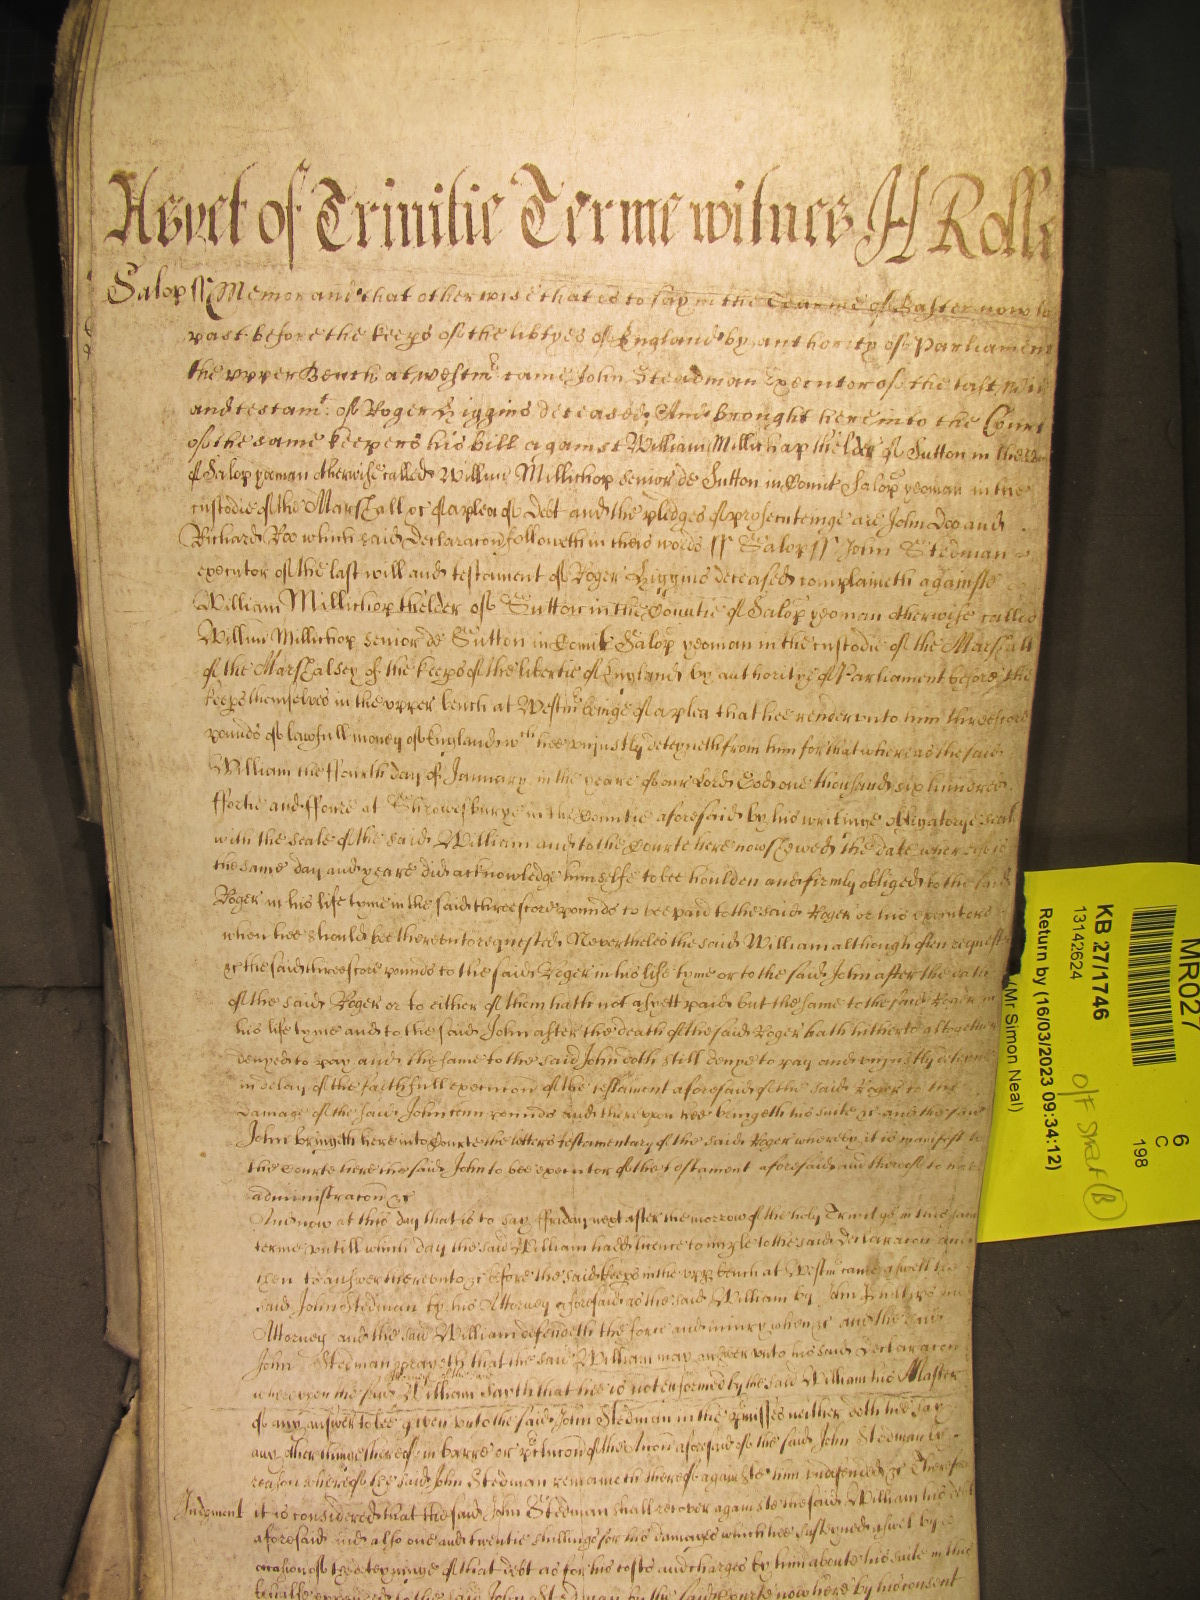 As yet of Trinitie Terme witnes H Rolle
Salop ss Memorand that otherwise that is to say in the Tearme of Easter now la
past before the keeps of the libtyes of England by authority of Parliament
the upper Bench at westm came John Steadman Executor of the last will
and testamt of Roger Higgins deceased And brought here into the Court
of the same keepers his bill against William Millichap thelder of Sutton in the Coun
of Salop yeoman otherwise called Willm Millichop senior de Sutton in Comit Salop yeoman in the
custodie of the Marshall &c of a plea of Debt and the pledges of prosecuteinge are John Doo and
Richard Roo which said Declaracon followeth in theis words ss Salop ss John Stedman
executor of the last will and testament of Roger Higgins deceased complaineth againste
William Millichop thelder of Sutton in the Countie of Salop yeoman otherwise called
Willm Millichop senior de Sutton in Comit Salop yeoman in the custodie of the Marshall
of the Marshalsey of the keeps of the libertie of England by authoritye of Parliament before the
keeps themselves in the upper bench at Westm beinge of a plea that hee render unto him threescore
pounds of lawfull money of England wch hee unjustly deteyneth from him for that whereas the said
William the ffourth day of January in the yeare of our Lord God one thousand six hundred
ffortie and ffoure at Shrowesburye in the Countie aforesaid by his writinge obligatorye seal
with the seale of the said William and to the Courte here now shewed the date whereof is
the same day and yeare did acknowledge himselfe to bee houlden and firmly obliged to the said
Roger in his life tyme in the said threescore pounds to bee paid to the said Roger or his executors
when hee should bee thereunto requested Neverthelesse the said William although often request
&c the said threescore pounds to the said Roger in his life tyme or to the said John after the death
of the said Roger or to either of them hath not as yett paid but the same to the said Roger in
his life tyme and to the said John after the death of the said Roger hath hitherto altogether
denyed to pay and the same to the said John doth still denye to pay and unjustly deteyne
in delay of the faithfull execucon of the testament aforesaid of the said Roger to the
damage of the said John tenn pounds and thereupon hee bringeth his suite &c And the said
John bringeth here into Courte the letters testamentary of the said Roger whereby it is manifest to
the Courte here the said John to bee executor of the testament aforesaid and thereof to have
administracon &c
And now at this day that is to say ffriday next after the morrow of the holy Trinitye in this same
terme untill which day the said William had licence to imple to the said Declaracon and
then to answer thereunto &c before the said keeps in the upp bench at Westm came aswell the
said John Stedman by his Attorney aforesaid as the said William by his
Attorney and the said William defendeth the force and iniury when &c and the said
John Stedman prayeth that the said William may answer unto his said Declaracon
whereupon the said Attorney of the said William saith that hee is not enformed by the said William his Master
of any answer to bee given unto the said John Stedman in the pmisses neither doth hee say
any other thinge thereof in barre or pclucon of the Accon aforesaid of the said John Stedman by
reason whereof the said John Stedman remaineth thereof againste him undefended &c Therefore
Judgment it is considered that the said John Stedman shall recover againste the said William his debt
aforesaid and also one and twentie shillings for his damages which hee susteyned aswel by
occasion of the deteyninge of that debt as for his costs and charges by him aboute his suite in this
behalfe expended to the said John Stedman by the said Courte now here by his consent
MR027
6
C
198
KB 27/1746
13142624
Return by (16/03/2023 09:34:12)
(Mr Simon Neal)
O/F Shelf B